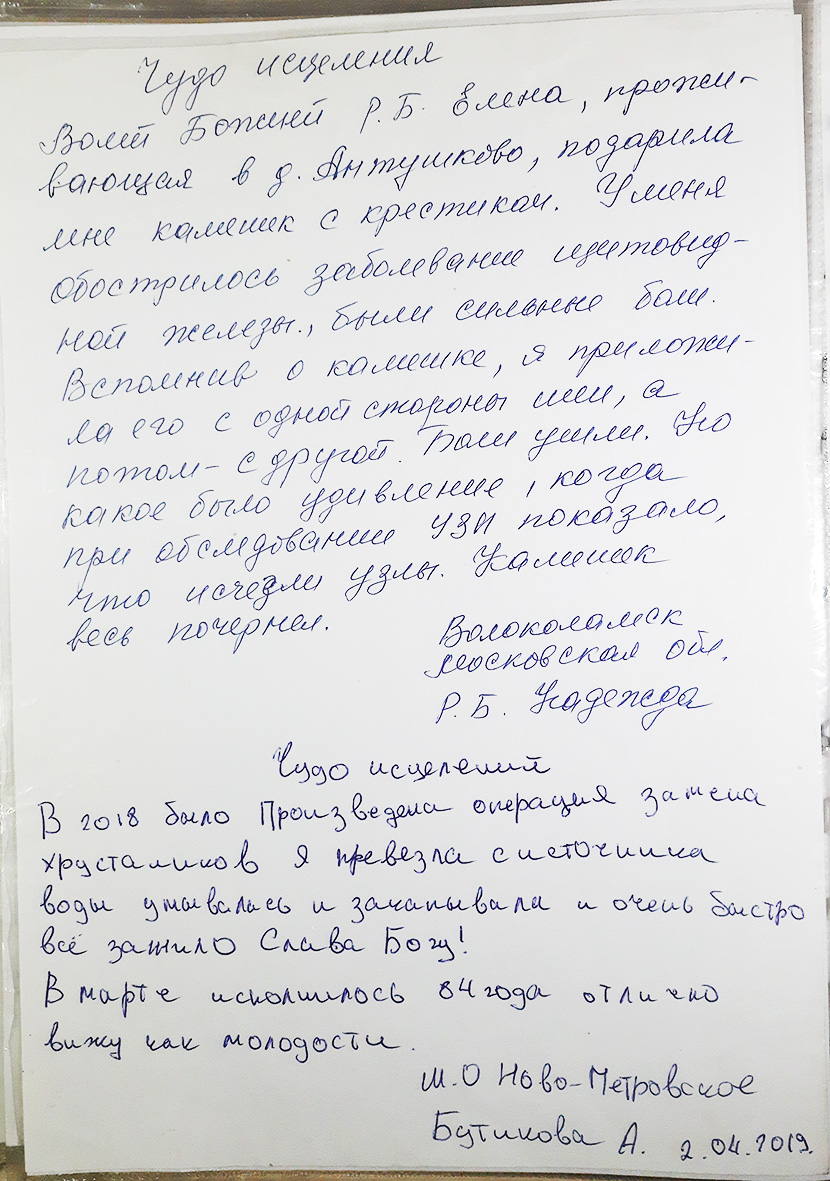 Чудо исцеления
Волей Божией Р.Б. Елена, прожи-
вающая в д. Антушково, подарила
мне камешек с крестиком. У меня
обострилось заболевание щитовид-
ной железы., были сильные боли.
Вспомнив о камешке, я приложи-
ла его с одной стороны шеи, а
потом – с другой. Боли ушли. Но
какое было удивление, когда
при обследовании УЗИ показало,
что исчезли узлы. Камешек
весь почернел.
Волоколамск
Московская обл.
Р.Б. Надежда
Чудо исцелений
В 2018 было Произведена операция замена
хрусталиков я превезла с источника
воды умывалась и закапывала и очень быстро
всё зажило Слава Богу!
В марте исполнилось 84 года отлично
вижу как молодости.
М.О Ново-Петровское
Бутикова А. 2.04.2019.